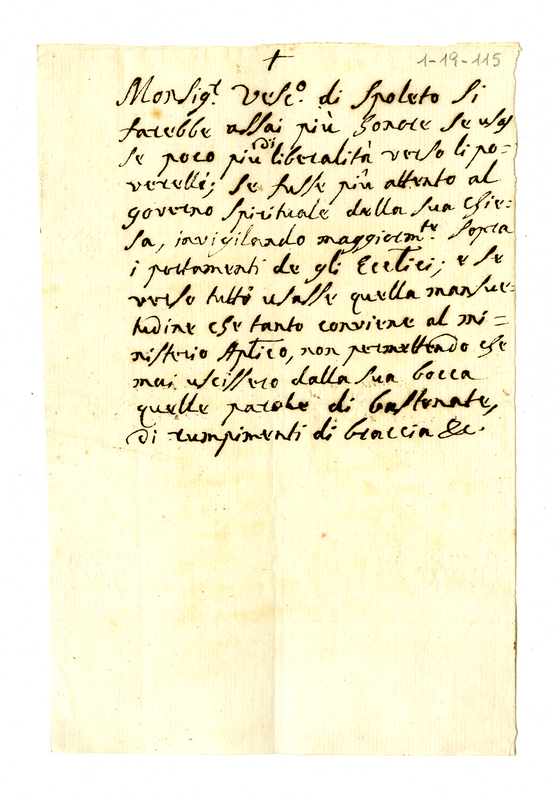 1-19-115
+
Monsig.r Vesc.o di Spoleto si
farebbe assai più honore se usas
se poco più di liberalità verso li po=
verelli; se fusse più attento al
governo spirituale della sua Chie=
sa, invigilando maggiorm.te sopra
i portamenti de gli Eccl.ici; e se
verso tutti usasse quella mansue=
tudine che tanto conviene al mi=
nisterio Ap.lico, non permettendo che
mai uscissero dalla sua bocca
quelle parole di bastonate,
di rumpimenti di braccia &c.